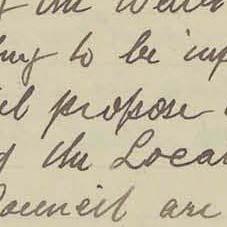 of the
ing to be imp
il propose
of the Local
Council are